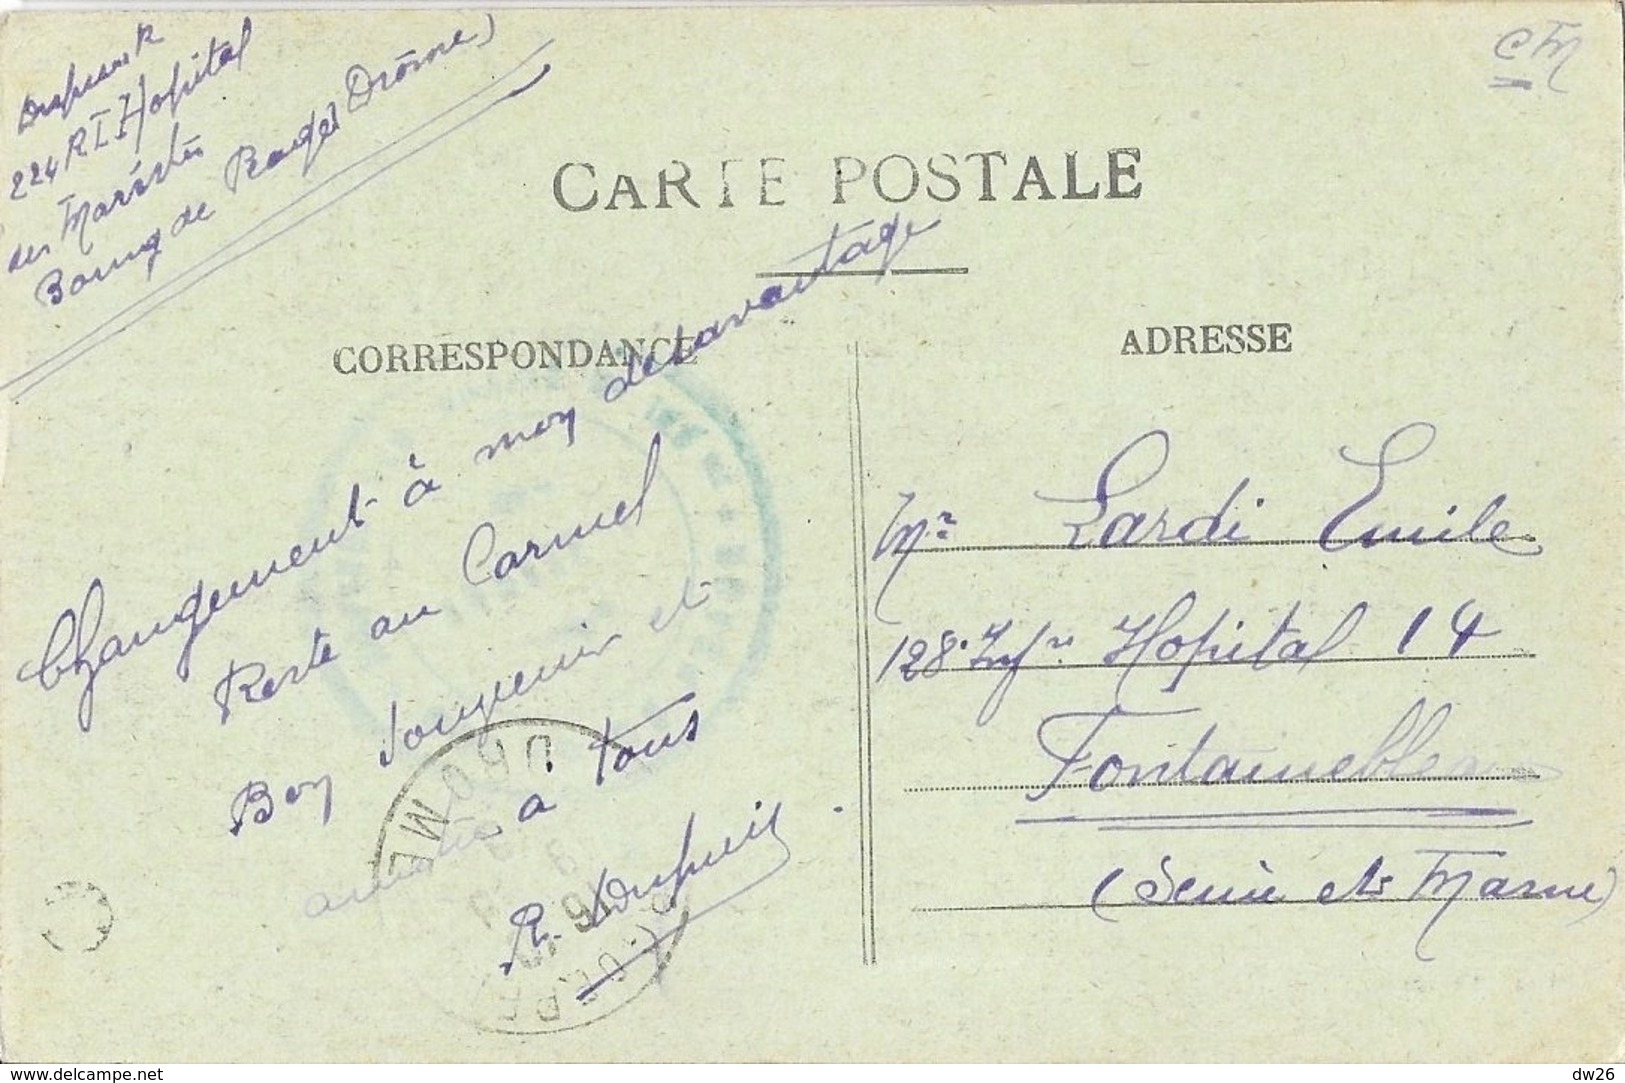 Dupuis R
224 RI Hopital
des Maristes
Bourg de Péage Drôme)
CM
CARTE POSTALE
CORRESPONDANCE
ADRESSE
Changement à mon desavantage
Reste au Carmel
Bon Souvenir et
amitiés a tous
R. Dupuis
Mr Lardi Emile
128e Infie Hopital 14
Fontainebleau
(Seine et Marne)
DROME
www.delcampe.net
dw26